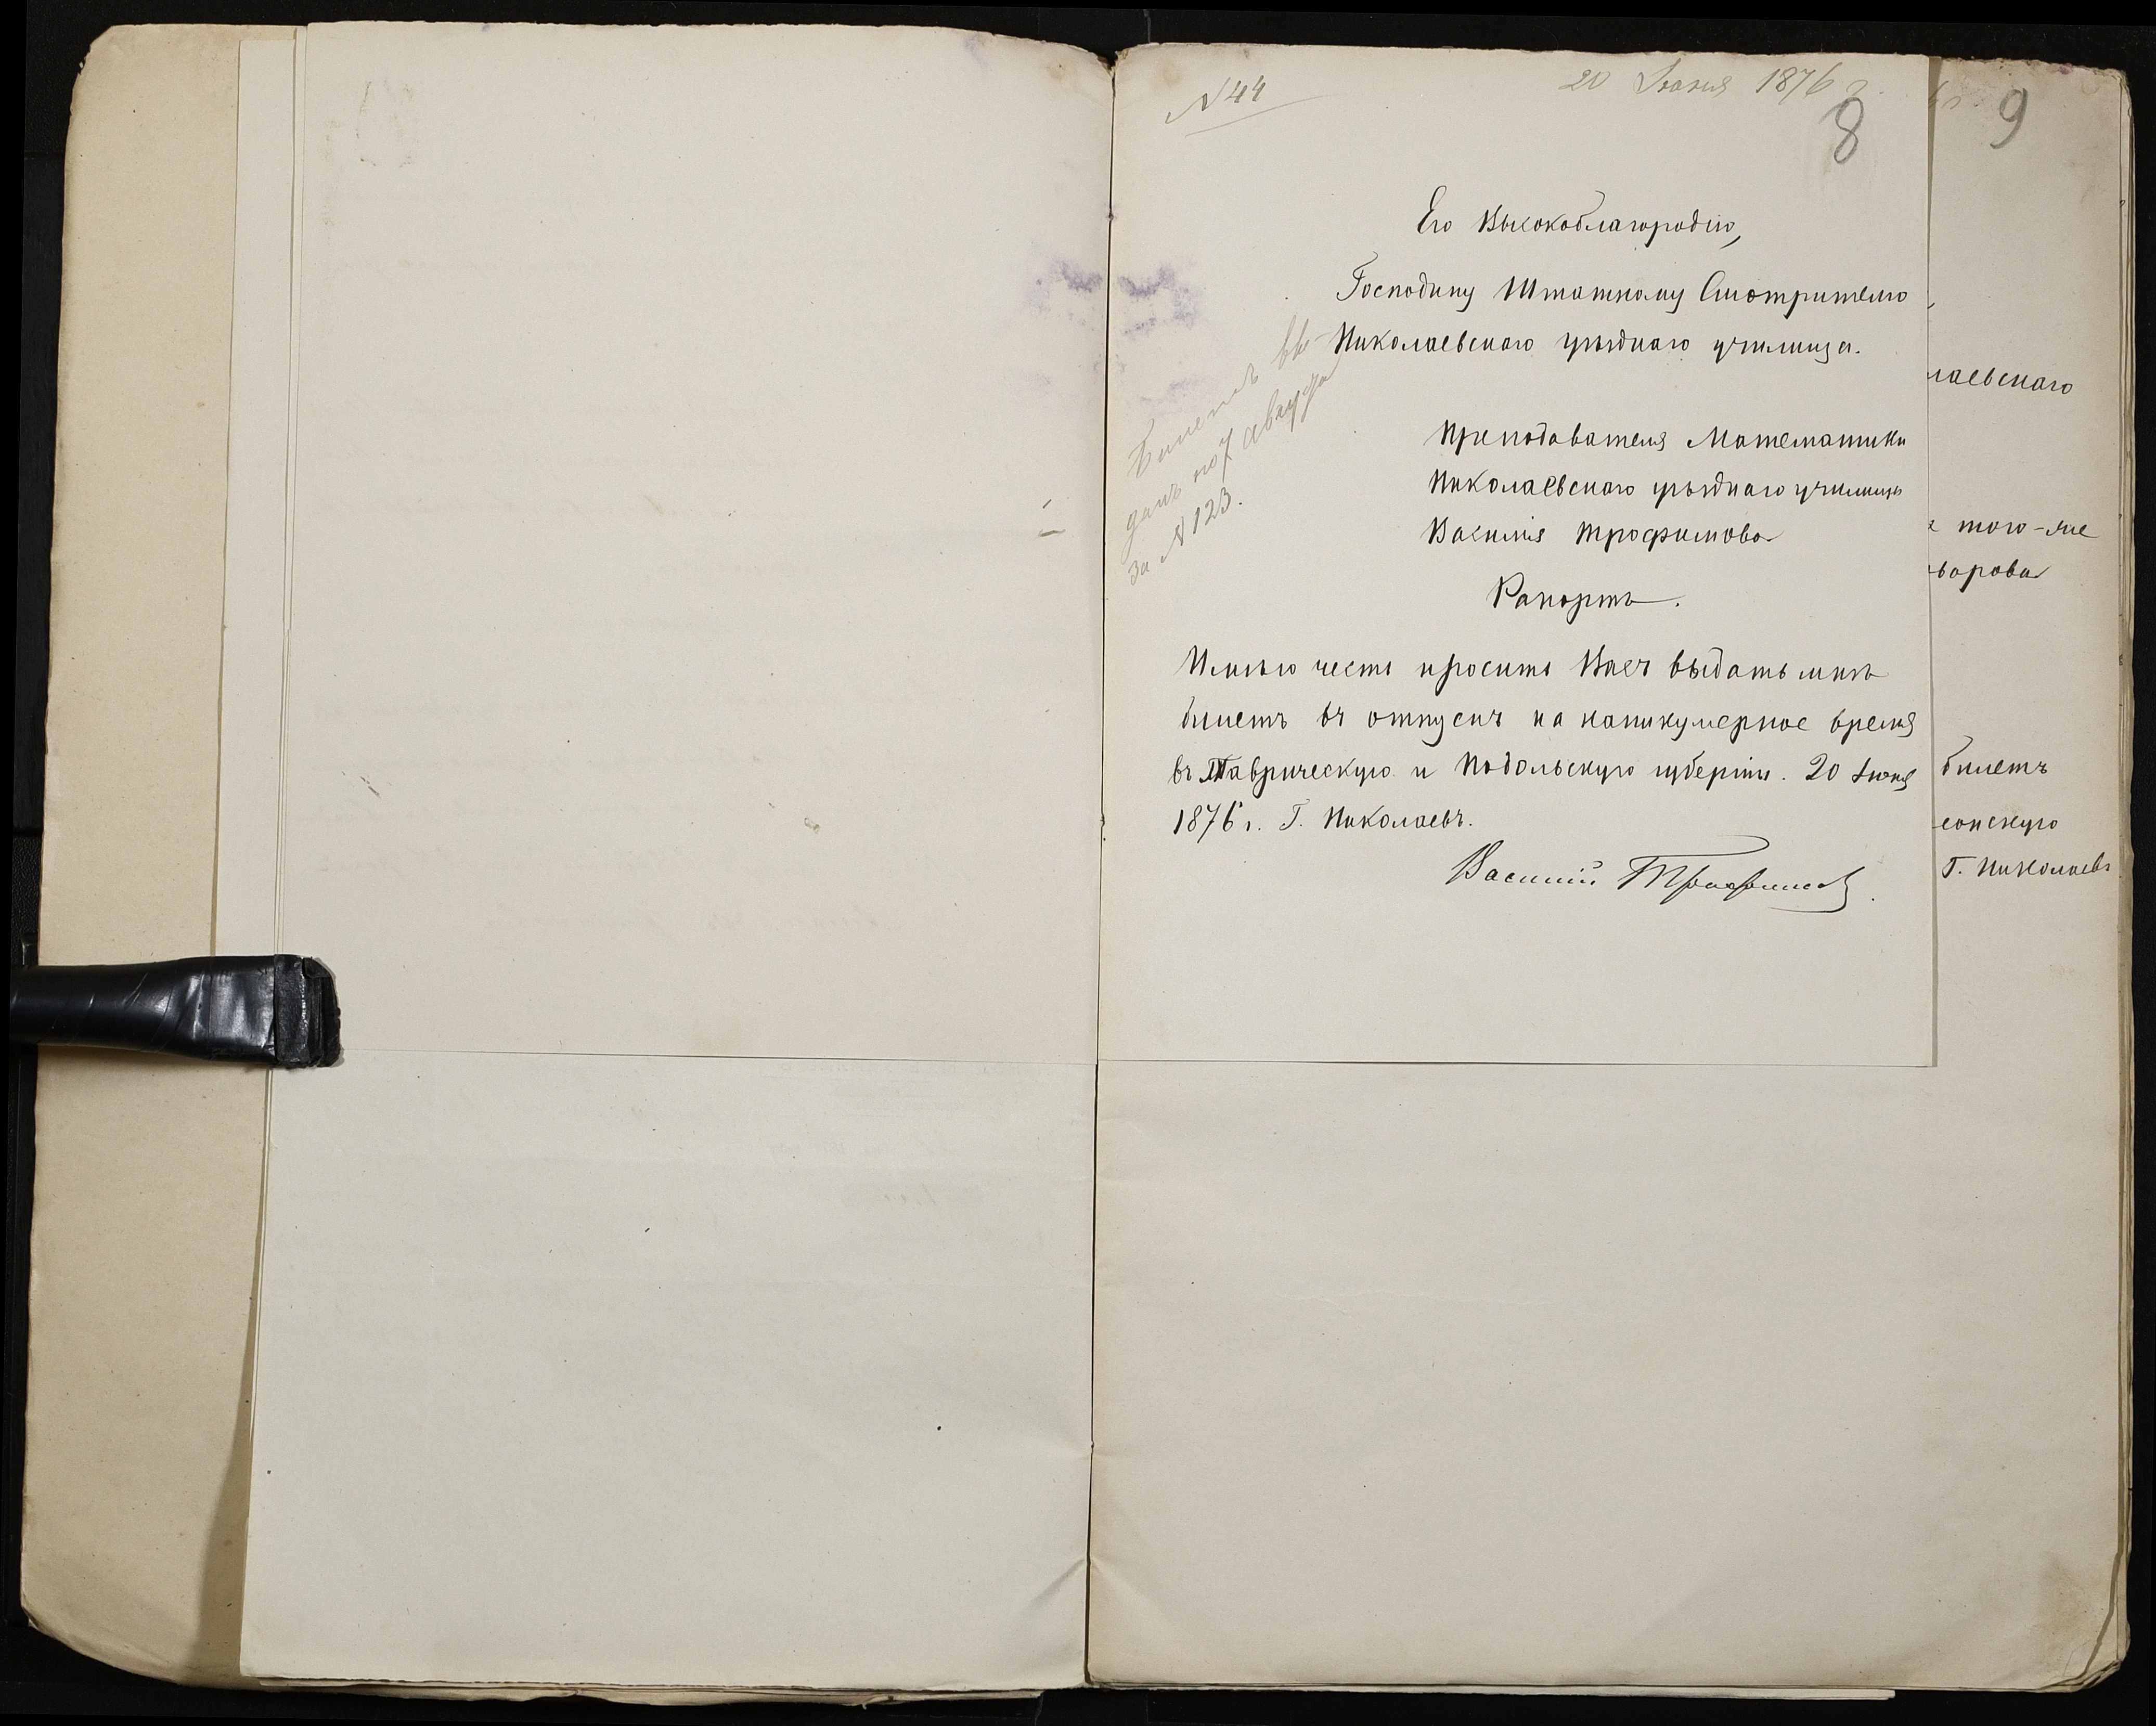 N 44
20 Іюня 1876 г.
8
Его Высокоблагородію,
Господину Штатному Смотрителю
Николаевскаго уѣзднаго училища.
Билетъ вы-
данъ по 7 августа
за N 123.
Преподавателя Математики
Николаевскаго уѣзднаго училища
Василія Трофимова
Рапортъ.
Имѣю честь просить Васъ выдать мнѣ
билетъ въ отпускъ на каникулярное время
въ Таврическую и Подольскую губерніи. 20 Іюня
1876 г. Г. Николаевъ.
Василій Трофимовъ.
9
лаевскаго
того-же
варова
билетъ
сонскую
Г. Николаевъ